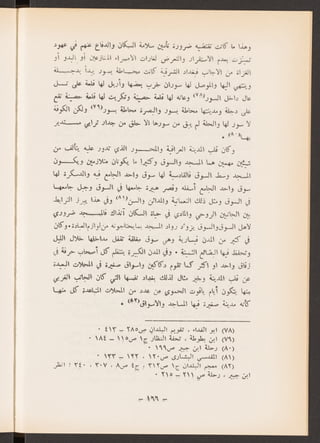 وهذا ما كانت تقتضيه ضرورة تأمين سلامة السكان والدفاع عنهم في عهود
تميزت بعدم الاستقرار والتعرض لغارات الامراء المتنازعين أو البدو أو
الغزاة من الاجانب فبغداد الشرقية كانت محاطة بسور يبدأ بدجلة
وينتهي اليها والموصل لها سوران قرب بعضها وأربل لها قلعة على تل
عال داخل السور(٧٨) وعانه لها قلعة حصينة وتكريت لها قلعة حصينة تقع
على دجلة ومدينتها محاطة بسور والبصرة محاطة بسور(٧٩) ولكن الكوفة
لا سور لها والحلة لم يبق من سورها الا حلق من جدار ترابي مستدير
بها(٨٠)٠
وكان قلب المدينة العراقية والمحور الذي تدور عليه يتألف من
شيئين مهمين هما المسجد والسوق وكثيرا ما يكونان متلازمين ويكون
المسجد وسط السوق فالقادسية لها سوق واحد الجامع فيه والدسكرة لها
سوق واحد الجامع أسفله وقصر هبيرة جامعها في السوق وجبل جامعها
في السوق ومثل ذلك النعمانية والمدائن والسن(٨١) وفي هذا يبرز الترابط
بين الجانبين الروحي والمادي في حياة السكان آنذاك فالمسجد ضروري
لاهل السوق والسوق يزود رواد المسجد بما يحتاجونه من لوازم العبادة٠ وكان
في كثير من المدن قيسارية وهي سوق مقفلة تقفل مداخلها خلال الليل
وتحفظ فيها البضائع الثمينة ٠ وفي المدن الكبيرة ينتظم كل أصحاب حرفة في
زقاق واحد أو اكثر كما تقوم دكاكين واسواق صغيرة في المحلات البعيدة
عن قلب المدينة وخير مثال لذلك بغداد نفسها التي كان الجانب الغربي
منها يتكون أيام ياقوت الحموي من عدد من المحلات المتباعدة كل منها
كأنه مدينة صغيرة فيها المساجد والاسواق(٨٢)٠
(٧٨) أبو الفداء ، تقويم البلدان ص٢٨٥ - ٤١٣ ٠
(٧٩) ابن بطوطة ، تحفة النظار ج١ ص١١٥ - ١٨٤ ٠
(٨٠) رحلة ابن جبير ص١٦٩ ٠
(٨١) المقدسي البشارى ص١٢٠ ، ١٢٢ - ١٢٣ ٠
(٨٢) معجم البلدان ج١ ص٣١٢ ؛ ج٤ ص٨ ، ٣٠٧ ، ٣٤٠ ؛ انظر
ابن جبير ، رحلة ص ٢١١ - ٢١٥ ٠
- ١٦٦ -